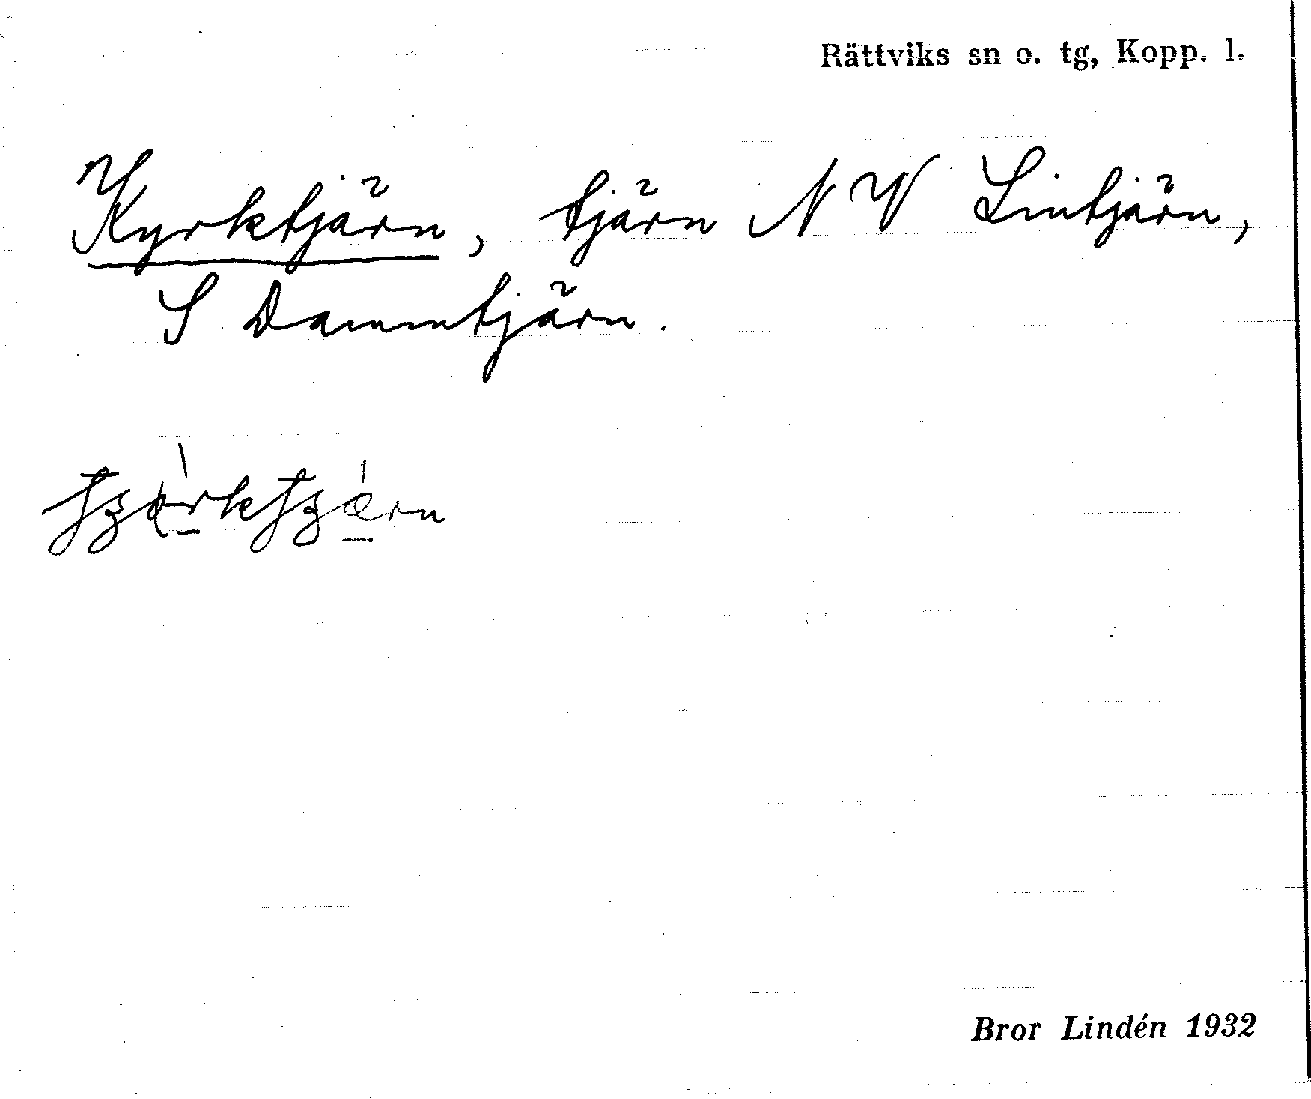 Rättviks sn o. tg, Kopp. l.
Kyrktjärn, tjärn NV Lintjärn,
S Dammtjärn.
Bror Lindén 1932